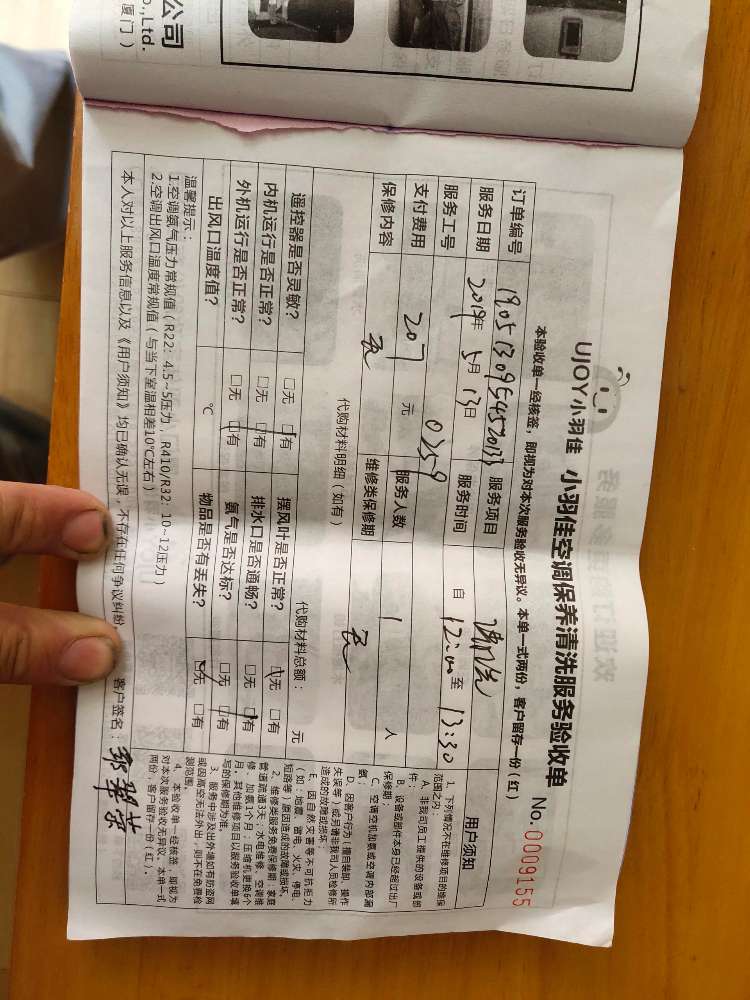 公司
o.,Ltd.
厦门）
UJOY小羽佳 小羽佳空调保养清洗服务验收单
No.0009155
本验收单一经核签，即视为对本次服务验收无异议。本单一式两份，客户留存一份（红）
订单编号 服务项目 清洗
服务日期 2019年 5月 13日 服务时间 自 12:00 至 13:30
服务工号 0259 服务人数 1 人
支付费用 207 元
保修内容 无 维修类保修期 无
代购材料明细（如有） 代购材料总额： 元
遥控器是否灵敏？ □无 □有 摆风叶是否正常？ □无 □有
内机运行是否正常？ □无 □有 排水口是否通畅？ □无 □有
外机运行是否正常？ □无 □有 氨气是否达标？ □无 □有
出风口温度值？ ℃ 物品是否有丢失？ □无 □有
温馨提示：
1.空调氨气压力常规值（R22：4.5~5压力，R410/R32：10~12压力）
2.空调出风口温度常规值（与当下室温相差10℃左右）
本人对以上服务信息以及《用户须知》均已确认无误，不存在任何争议纠纷 客户签名：
用户须知
1、下列情况不在维修项目的维保
范围之内：
A、非我司员工提供的设备或部
件；
B、设备或部件本身已经超过出厂
保修期；
C、空调空机加氨或空调内部漏
氨；
D、因客户行为（擅自装卸、操作
失误等）或另请非我司人员检修所
造成的故障或损坏
E、因自然灾害等不可抗拒力
（如：地震、雷电、火灾、停电、
短路等）原因造成的故障或损坏。
2、维修类服务免费保修期：家庭
管道疏通3天；水电维修、空调维
修、加氨1个月；压缩机更换6个
月；其他维修项目以服务验收单填
写的保修期为准。
3、服务中涉及出外墙如有防盗网
或因高空无法外出，则不在免费检
测范围。
4、本验收单一经核签，即视为
对本次服务验收无异议。本单一式
两份，客户留存一份（红）。